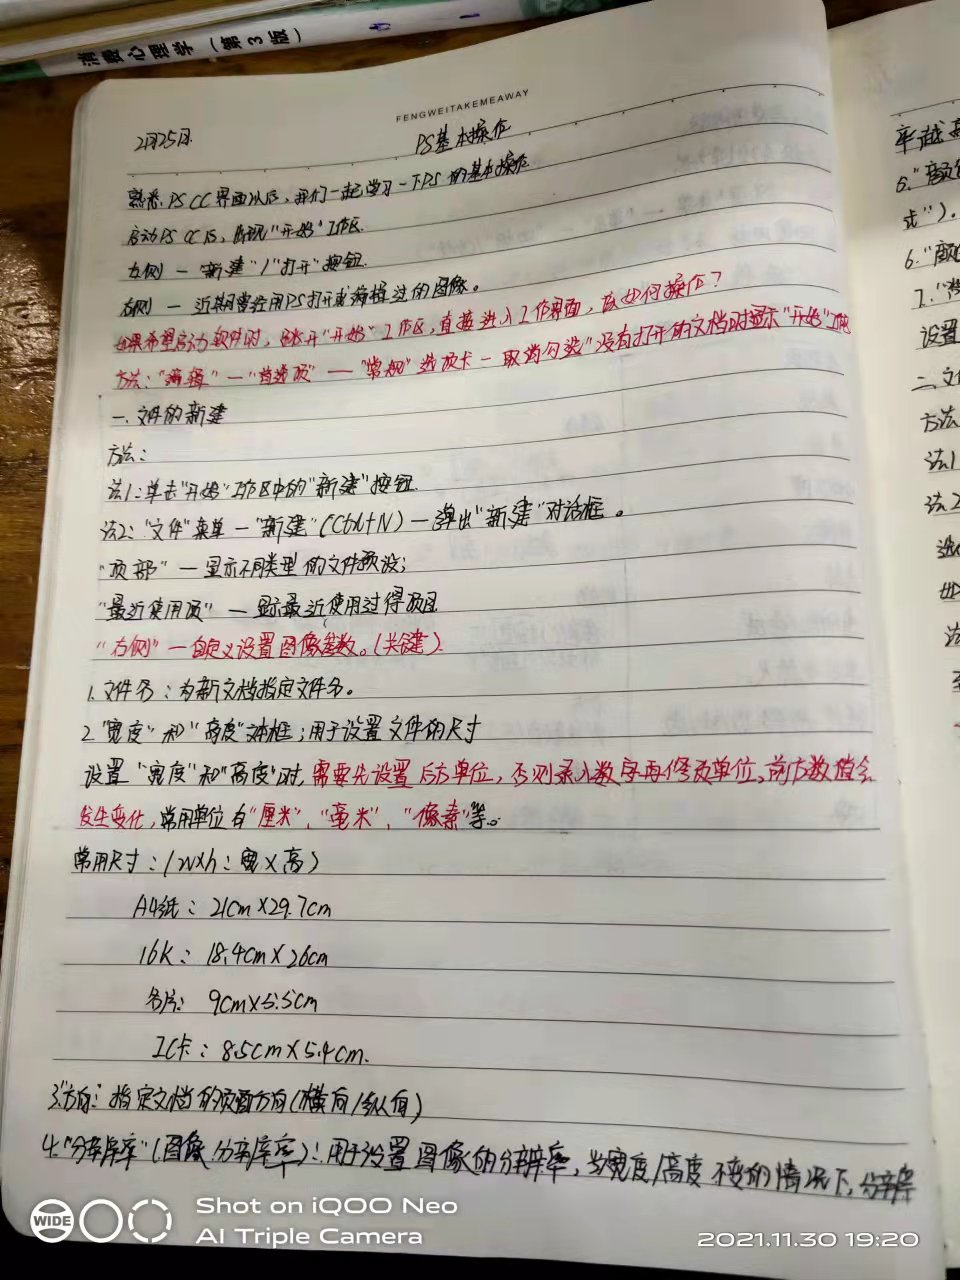 消费心理学（第3版）
FENGWEITAKEMEAWAY
2月25日. PS基本操作
熟悉PS CC界面以后，我们一起学习一下PS的基本操作
启动PS CC后，出现"开始"工作区.
左侧 — "新建"/"打开"按钮.
右侧 — 近期曾经用PS打开或编辑过的图像。
如果希望启动软件时，跳开"开始"工作区，直接进入工作界面，该如何操作？
方法："编辑"—"首选项" — "常规"选项卡 — 取消勾选"没有打开的文档时显示"开始"工作区
一. 文件的新建
方法：
法1：单击"开始"工作区中的"新建"按钮.
法2："文件"菜单 — "新建"(Ctrl+N) — 弹出"新建"对话框。
"顶部" — 显示不同类型的文件预设；
"最近使用项" — 显示最近使用过得项目
"右侧" — 自定义设置图像参数。(关键)
1. 文件名：为新文档指定文件名。
2. "宽度"和"高度"文本框；用于设置文件的尺寸
设置"宽度"和"高度"时，需要先设置后方单位，否则录入数字再修改单位，前方数值会
发生变化，常用单位有"厘米"、"毫米"、"像素"等。
常用尺寸：(w×h：宽×高)
A4纸：21cm×29.7cm
16K：18.4cm×26cm
名片：9cm×5.5cm
IC卡：8.5cm×5.4cm.
3."方向"：指定文档的页面方向(横向/纵向)
4."分辨率"(图像分辨率)：用于设置图像的分辨率，当宽度/高度不变的情况下，分辨率
卓越
6."颜
式").
6."颜
7."
设置
二.文
方法
法1
法2
选
如
法
至
WIDE
Shot on iQOO Neo
AI Triple Camera
2021.11.30 19:20